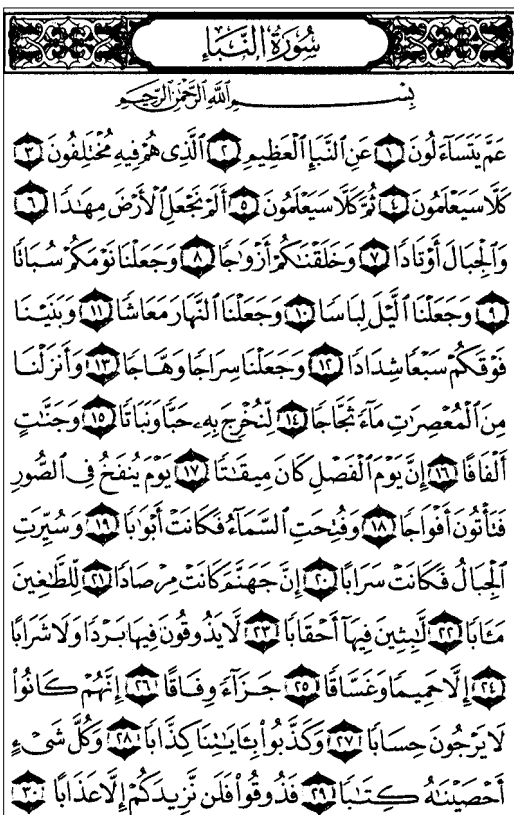 سُورَةُ النَّبَإِ
بِسْمِ اللَّهِ الرَّحْمَٰنِ الرَّحِيمِ
عَمَّ يَتَسَآءَلُونَ ١ عَنِ ٱلنَّبَإِ ٱلْعَظِيمِ ٢ ٱلَّذِى هُمْ فِيهِ مُخْتَلِفُونَ ٣
كَلَّا سَيَعْلَمُونَ ٤ ثُمَّ كَلَّا سَيَعْلَمُونَ ٥ أَلَمْ نَجْعَلِ ٱلْأَرْضَ مِهَٰدًا ٦
وَٱلْجِبَالَ أَوْتَادًا ٧ وَخَلَقْنَٰكُمْ أَزْوَٰجًا ٨ وَجَعَلْنَا نَوْمَكُمْ سُبَاتًا
٩ وَجَعَلْنَا ٱلَّيْلَ لِبَاسًا ١٠ وَجَعَلْنَا ٱلنَّهَارَ مَعَاشًا ١١ وَبَنَيْنَا
فَوْقَكُمْ سَبْعًا شِدَادًا ١٢ وَجَعَلْنَا سِرَاجًا وَهَّاجًا ١٣ وَأَنزَلْنَا
مِنَ ٱلْمُعْصِرَٰتِ مَآءً ثَجَّاجًا ١٤ لِّنُخْرِجَ بِهِۦ حَبًّا وَنَبَاتًا ١٥ وَجَنَّٰتٍ
أَلْفَافًا ١٦ إِنَّ يَوْمَ ٱلْفَصْلِ كَانَ مِيقَٰتًا ١٧ يَوْمَ يُنفَخُ فِى ٱلصُّورِ
فَتَأْتُونَ أَفْوَاجًا ١٨ وَفُتِحَتِ ٱلسَّمَآءُ فَكَانَتْ أَبْوَٰبًا ١٩ وَسُيِّرَتِ
ٱلْجِبَالُ فَكَانَتْ سَرَابًا ٢٠ إِنَّ جَهَنَّمَ كَانَتْ مِرْصَادًا ٢١ لِّلطَّٰغِينَ
مَـَٔابًا ٢٢ لَّٰبِثِينَ فِيهَآ أَحْقَابًا ٢٣ لَّا يَذُوقُونَ فِيهَا بَرْدًا وَلَا شَرَابًا
٢٤ إِلَّا حَمِيمًا وَغَسَّاقًا ٢٥ جَزَآءً وِفَاقًا ٢٦ إِنَّهُمْ كَانُوا۟
لَا يَرْجُونَ حِسَابًا ٢٧ وَكَذَّبُوا۟ بِـَٔايَٰتِنَا كِذَّابًا ٢٨ وَكُلَّ شَىْءٍ
أَحْصَيْنَٰهُ كِتَٰبًا ٢٩ فَذُوقُوا۟ فَلَن نَّزِيدَكُمْ إِلَّا عَذَابًا ٣٠